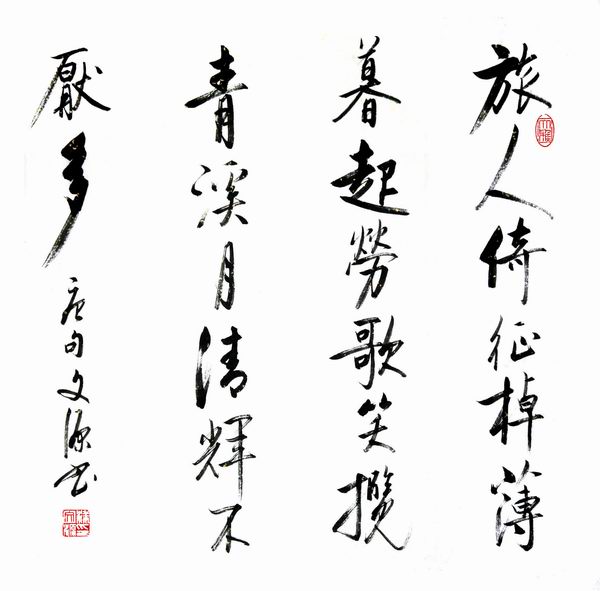 旅人倚征棹薄
暮起勞歌笑攬
青溪月清輝不
厭多
唐句文源书